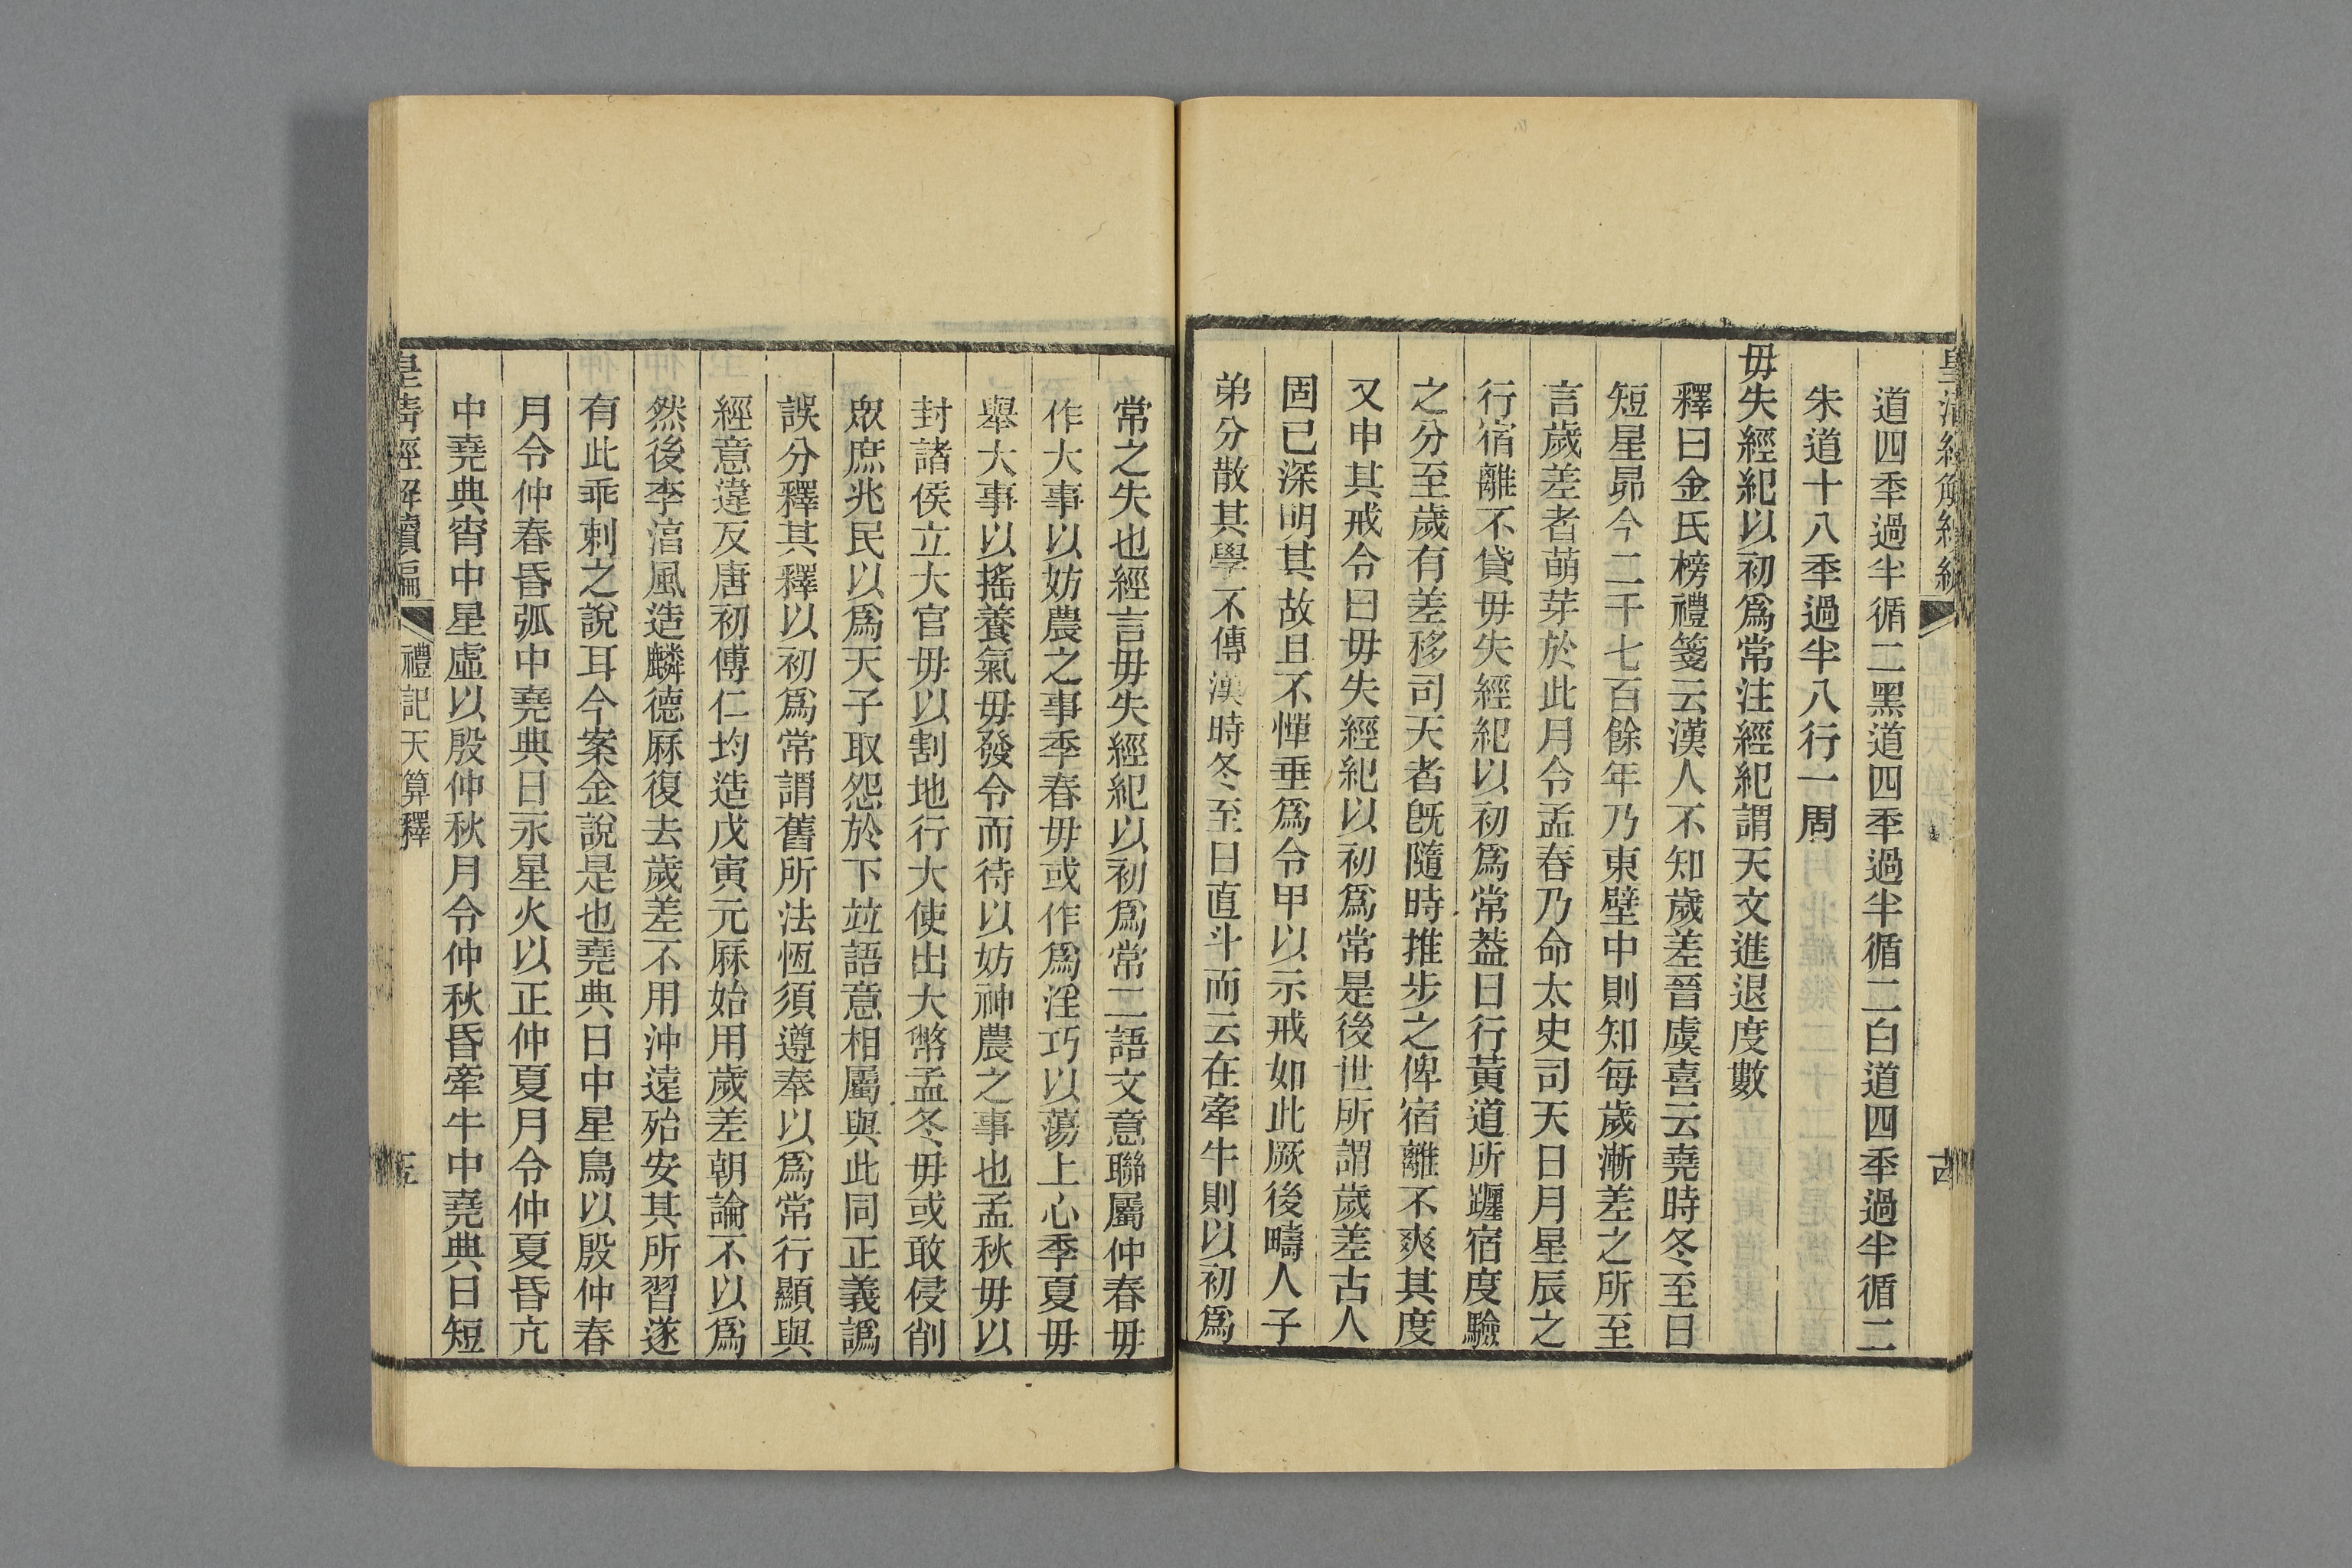 道四秊過半循二黑道四秊過半循二白道四秊過半循二
朱道十八秊過半八行一周
毋失經紀以初爲常注經紀謂天文進退度數
釋曰金氏榜禮箋云漢人不知歲差晉虞喜云堯時冬至日
短星昴今二千七百餘年乃東壁中則知每歲漸差之所至
言歲差者萌芽於此月令孟春乃命太史司天日月星辰之
行宿離不貸毋失經紀以初爲常葢日行黃道所躔宿度驗
之分至歲有差移司天者旣隨時推步之俾宿離不爽其度
又申其戒令曰毋失經紀以初爲常是後世所謂歲差古人
固已深明其故且不憚垂爲令甲以示戒如此厥後疇人子
弟分散其學不傳漢時冬至日直斗而云在牽牛則以初爲
常之失也經言毋失經紀以初爲常二語文意聯屬仲春毋
作大事以妨農之事季春毋或作爲淫巧以蕩上心季夏毋
舉大事以搖養氣毋發令而待以妨神農之事也孟秋毋以
封諸侯立大官毋以割地行大使出大幣孟冬毋或敢侵削
眾庶兆民以爲天子取怨於下竝語意相屬與此同正義譌
誤分釋其釋以初爲常謂舊所法恆須遵奉以爲常行顯與
經意違反唐初傅仁均造戊寅元厤始用歲差朝論不以爲
然後李湻風造麟德厤復去歲差不用沖遠殆安其所習遂
有此乖剌之說耳今案金說是也堯典日中星鳥以殷仲春
月令仲春昏弧中堯典日永星火以正仲夏月令仲夏昏亢
中堯典宵中星虛以殷仲秋月令仲秋昏牽牛中堯典日短
皇清經解續編
禮記天算釋